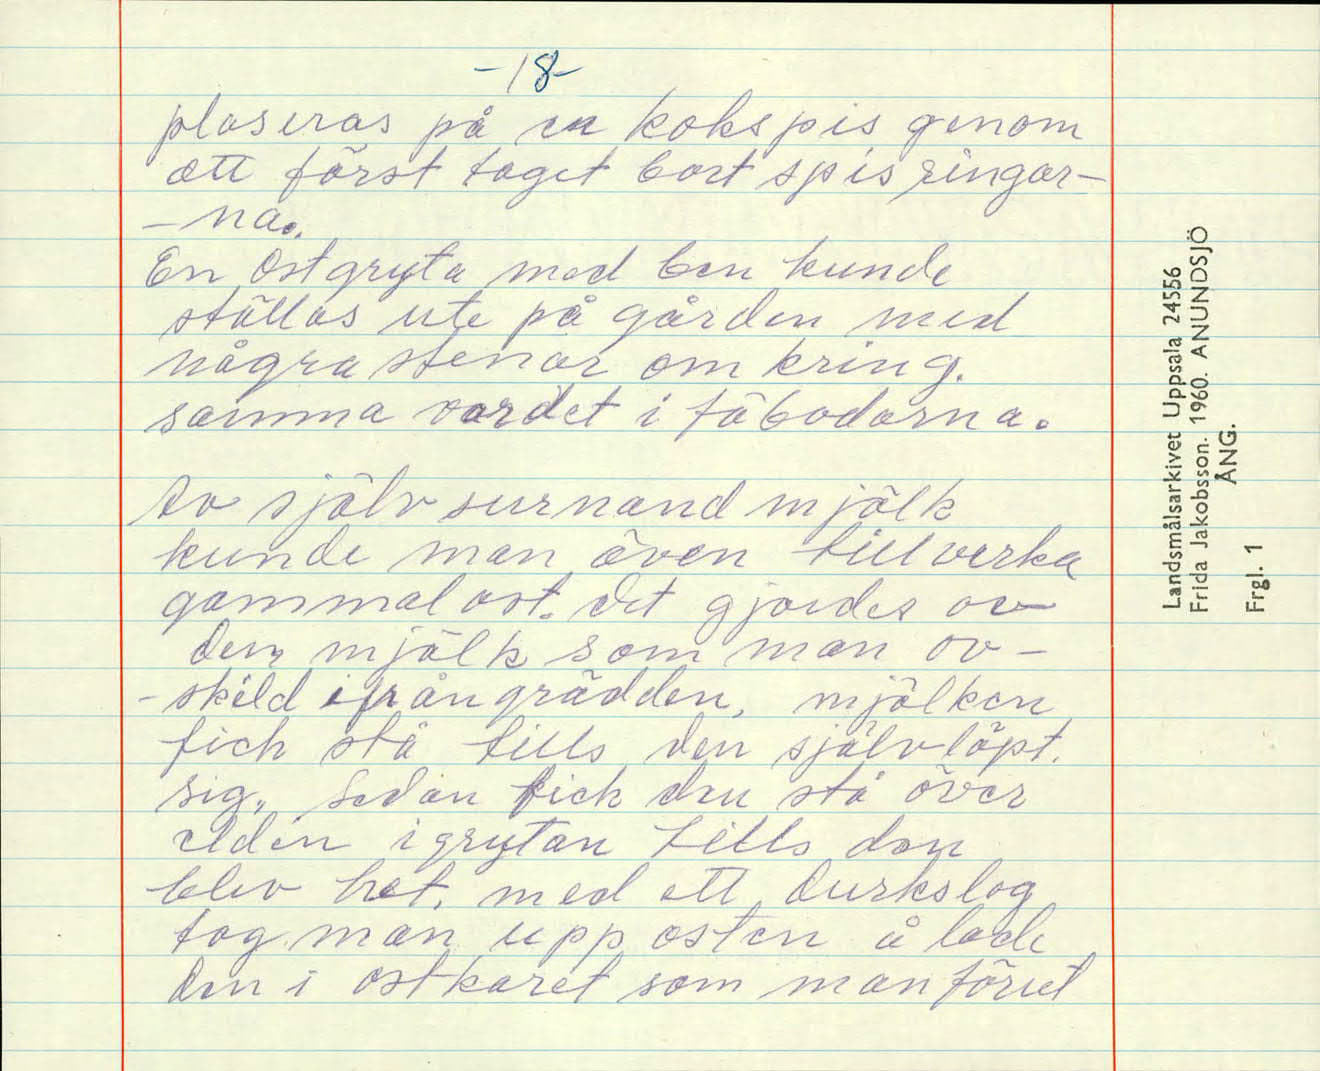 -18-
plaseras på en kokspis genom
att först taget bort spisringar-
-na.
En Ostgryta med ben kunde
ställas ute på gården med
några stenar omkring.
samma vardet i fäbodarna.
Av självsurnand mjölk
kunde man även tillverka
gammalost. det gjordes av
den mjölk som man av-
-skild ifrån grädden, mjölken
fich stå tills den självlöpt.
sig, Sedan fick den stå över
elden i grytan tills den
blev het. med ett durkslag
tog man upp osten å lade
den i ostkaret som man förut
Landsmålsarkivet Uppsala 24556
Frida Jakobsson. 1960. ANUNDSJÖ
ÅNG.
Frgl. 1